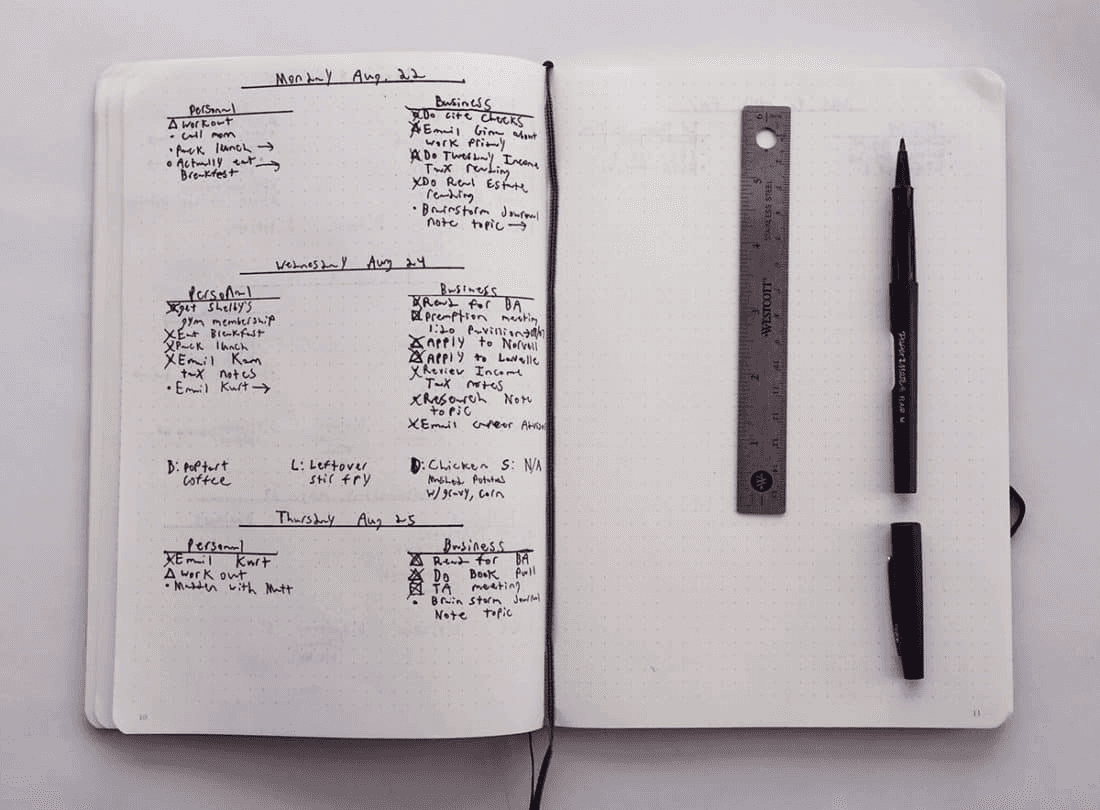 Monday Aug. 22
Personal
Workout
• Call mom
• Pack lunch →
o Actually eat →
Breakfast
Business
X Do cite checks
Email Gina about
work Friday
Do Tuesday Income
Tax reading
X Do Real Estate
reading
• Brainstorm Journal
note topic →
Wednesday Aug 24
Personal
X get Shelby's
gym membership
X Eat Breakfast
X Pack lunch
X Email Kam
tax notes
• Email Kurt →
Business
Read for BA
Premption meeting
1:20 Pavillion
Apply to Norvell
Apply to Lavelle
X Review Income
Tax notes
X Research Note
topic
X Email career
B: poptart
coffee
L: Leftover
stir fry
D: Chicken
Mashed Potatoes
w/gravy, corn
S: N/A
Thursday Aug 25
Personal
X Email Kurt
Work out
• Madden with Matt
Business
Read for BA
Do Book Pull
TA meeting
• Brain storm Journal
Note topic
10
11
STAINLESS STEEL
WESTCOTT
6
5
4
3
2
1
W